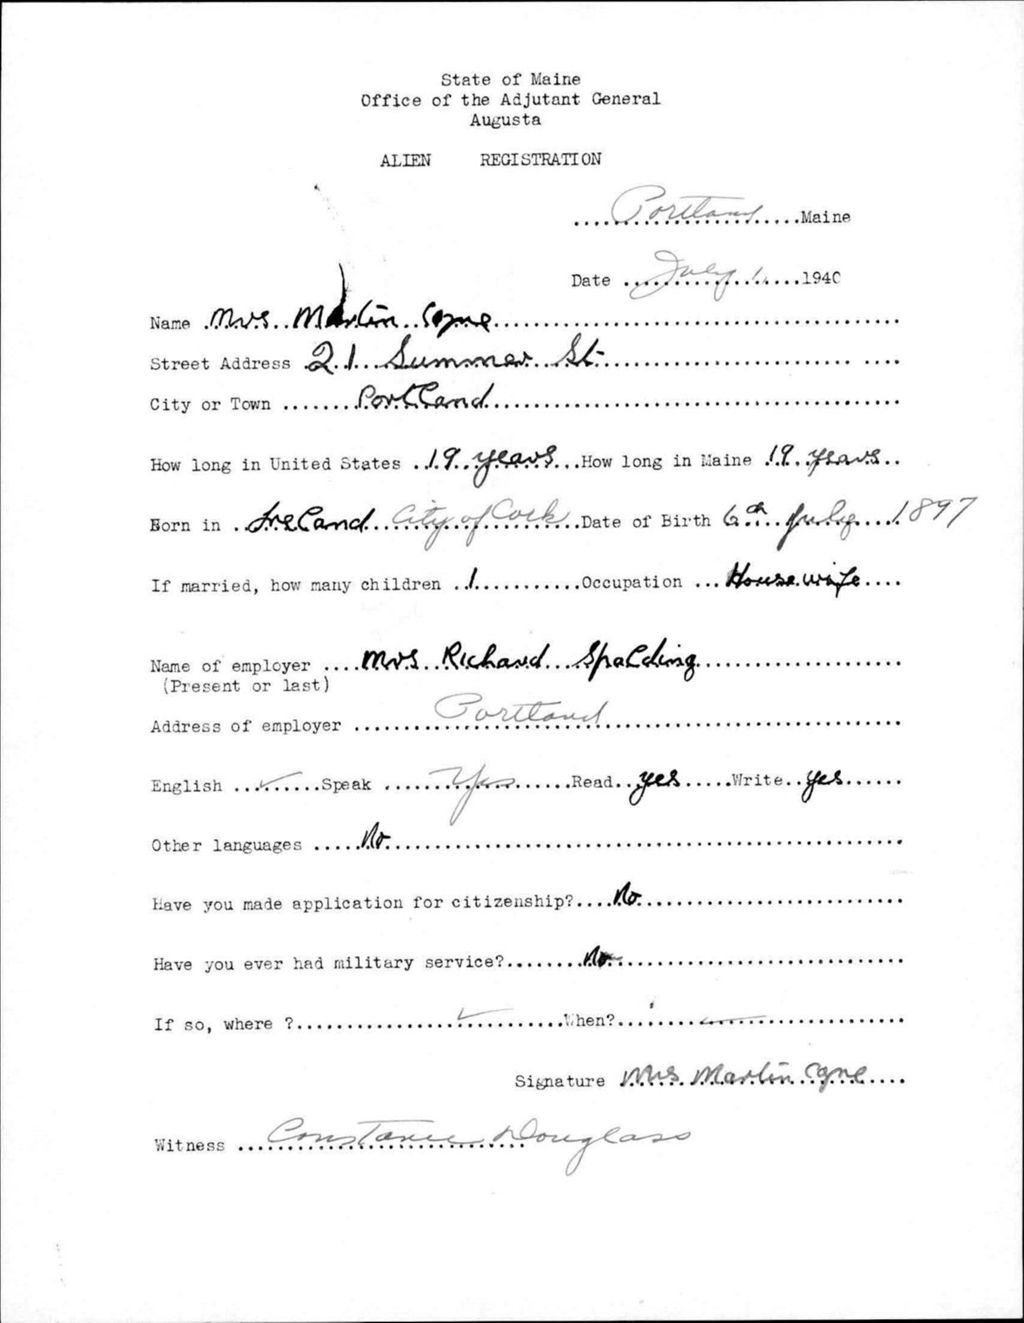 State of Maine
Office of the Adjutant General
Augusta
ALIEN REGISTRATION
Portland Maine
Date July 1 1940
Name Mrs Martin Cyne
Street Address 21 Summer St
City or Town Portland
How long in United States 19 years How long in Maine 19 years
Born in Ireland City of Cork Date of Birth 6th July 1897
If married, how many children 1 Occupation Housewife
Name of employer Mrs Richard Spalding
(Present or last)
Address of employer Portland
English ✓ Speak Yes Read yes Write yes
Other languages No
Have you made application for citizenship? No
Have you ever had military service? No
If so, where ? ✓ When? —
Signature Mrs Martin Cyne
Witness Constance Douglass